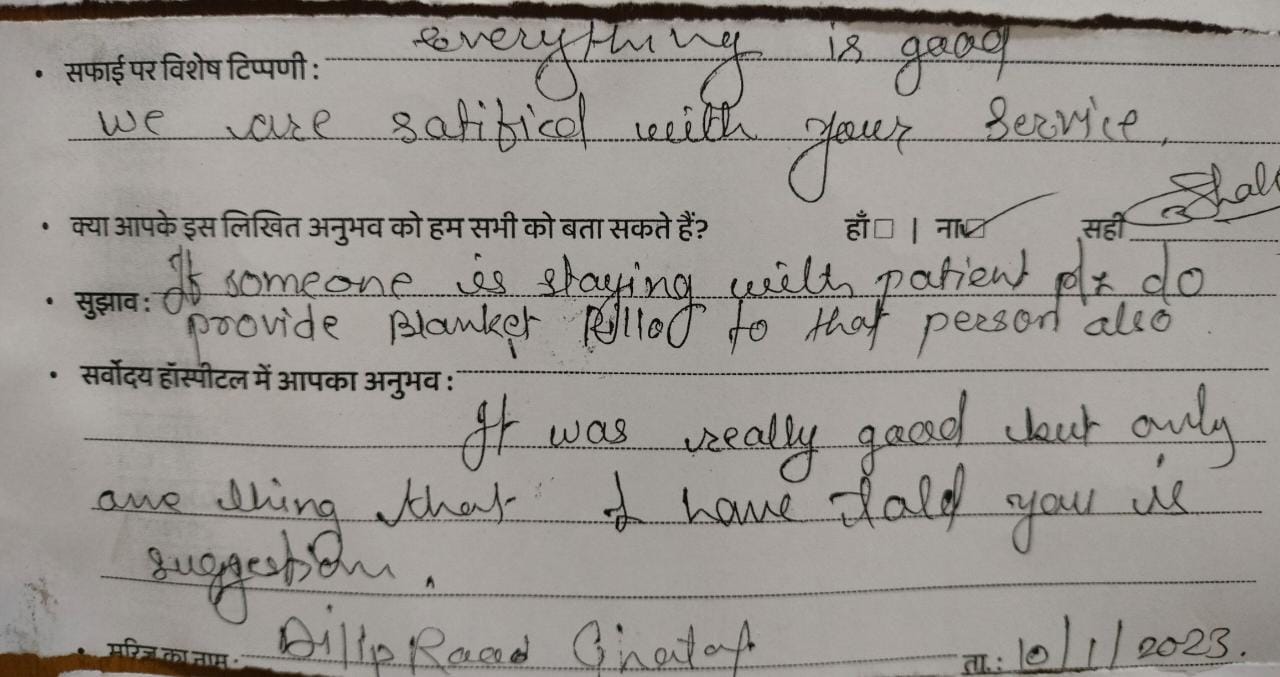 everything is good
• सफाई पर विशेष टिप्पणी :
we are satified with your service,
• क्या आपके इस लिखित अनुभव को हम सभी को बता सकते हैं? हाँ□ | ना☑ सही
If someone is staying with patient plz do
• सुझाव :
provide Blanket Pillow to that person also
• सर्वोदय हॉस्पीटल में आपका अनुभव :
It was really good but only
one thing that I have told you is
suggestion.
• मरिज का नाम. Dilip ता.: 10/1/2023.